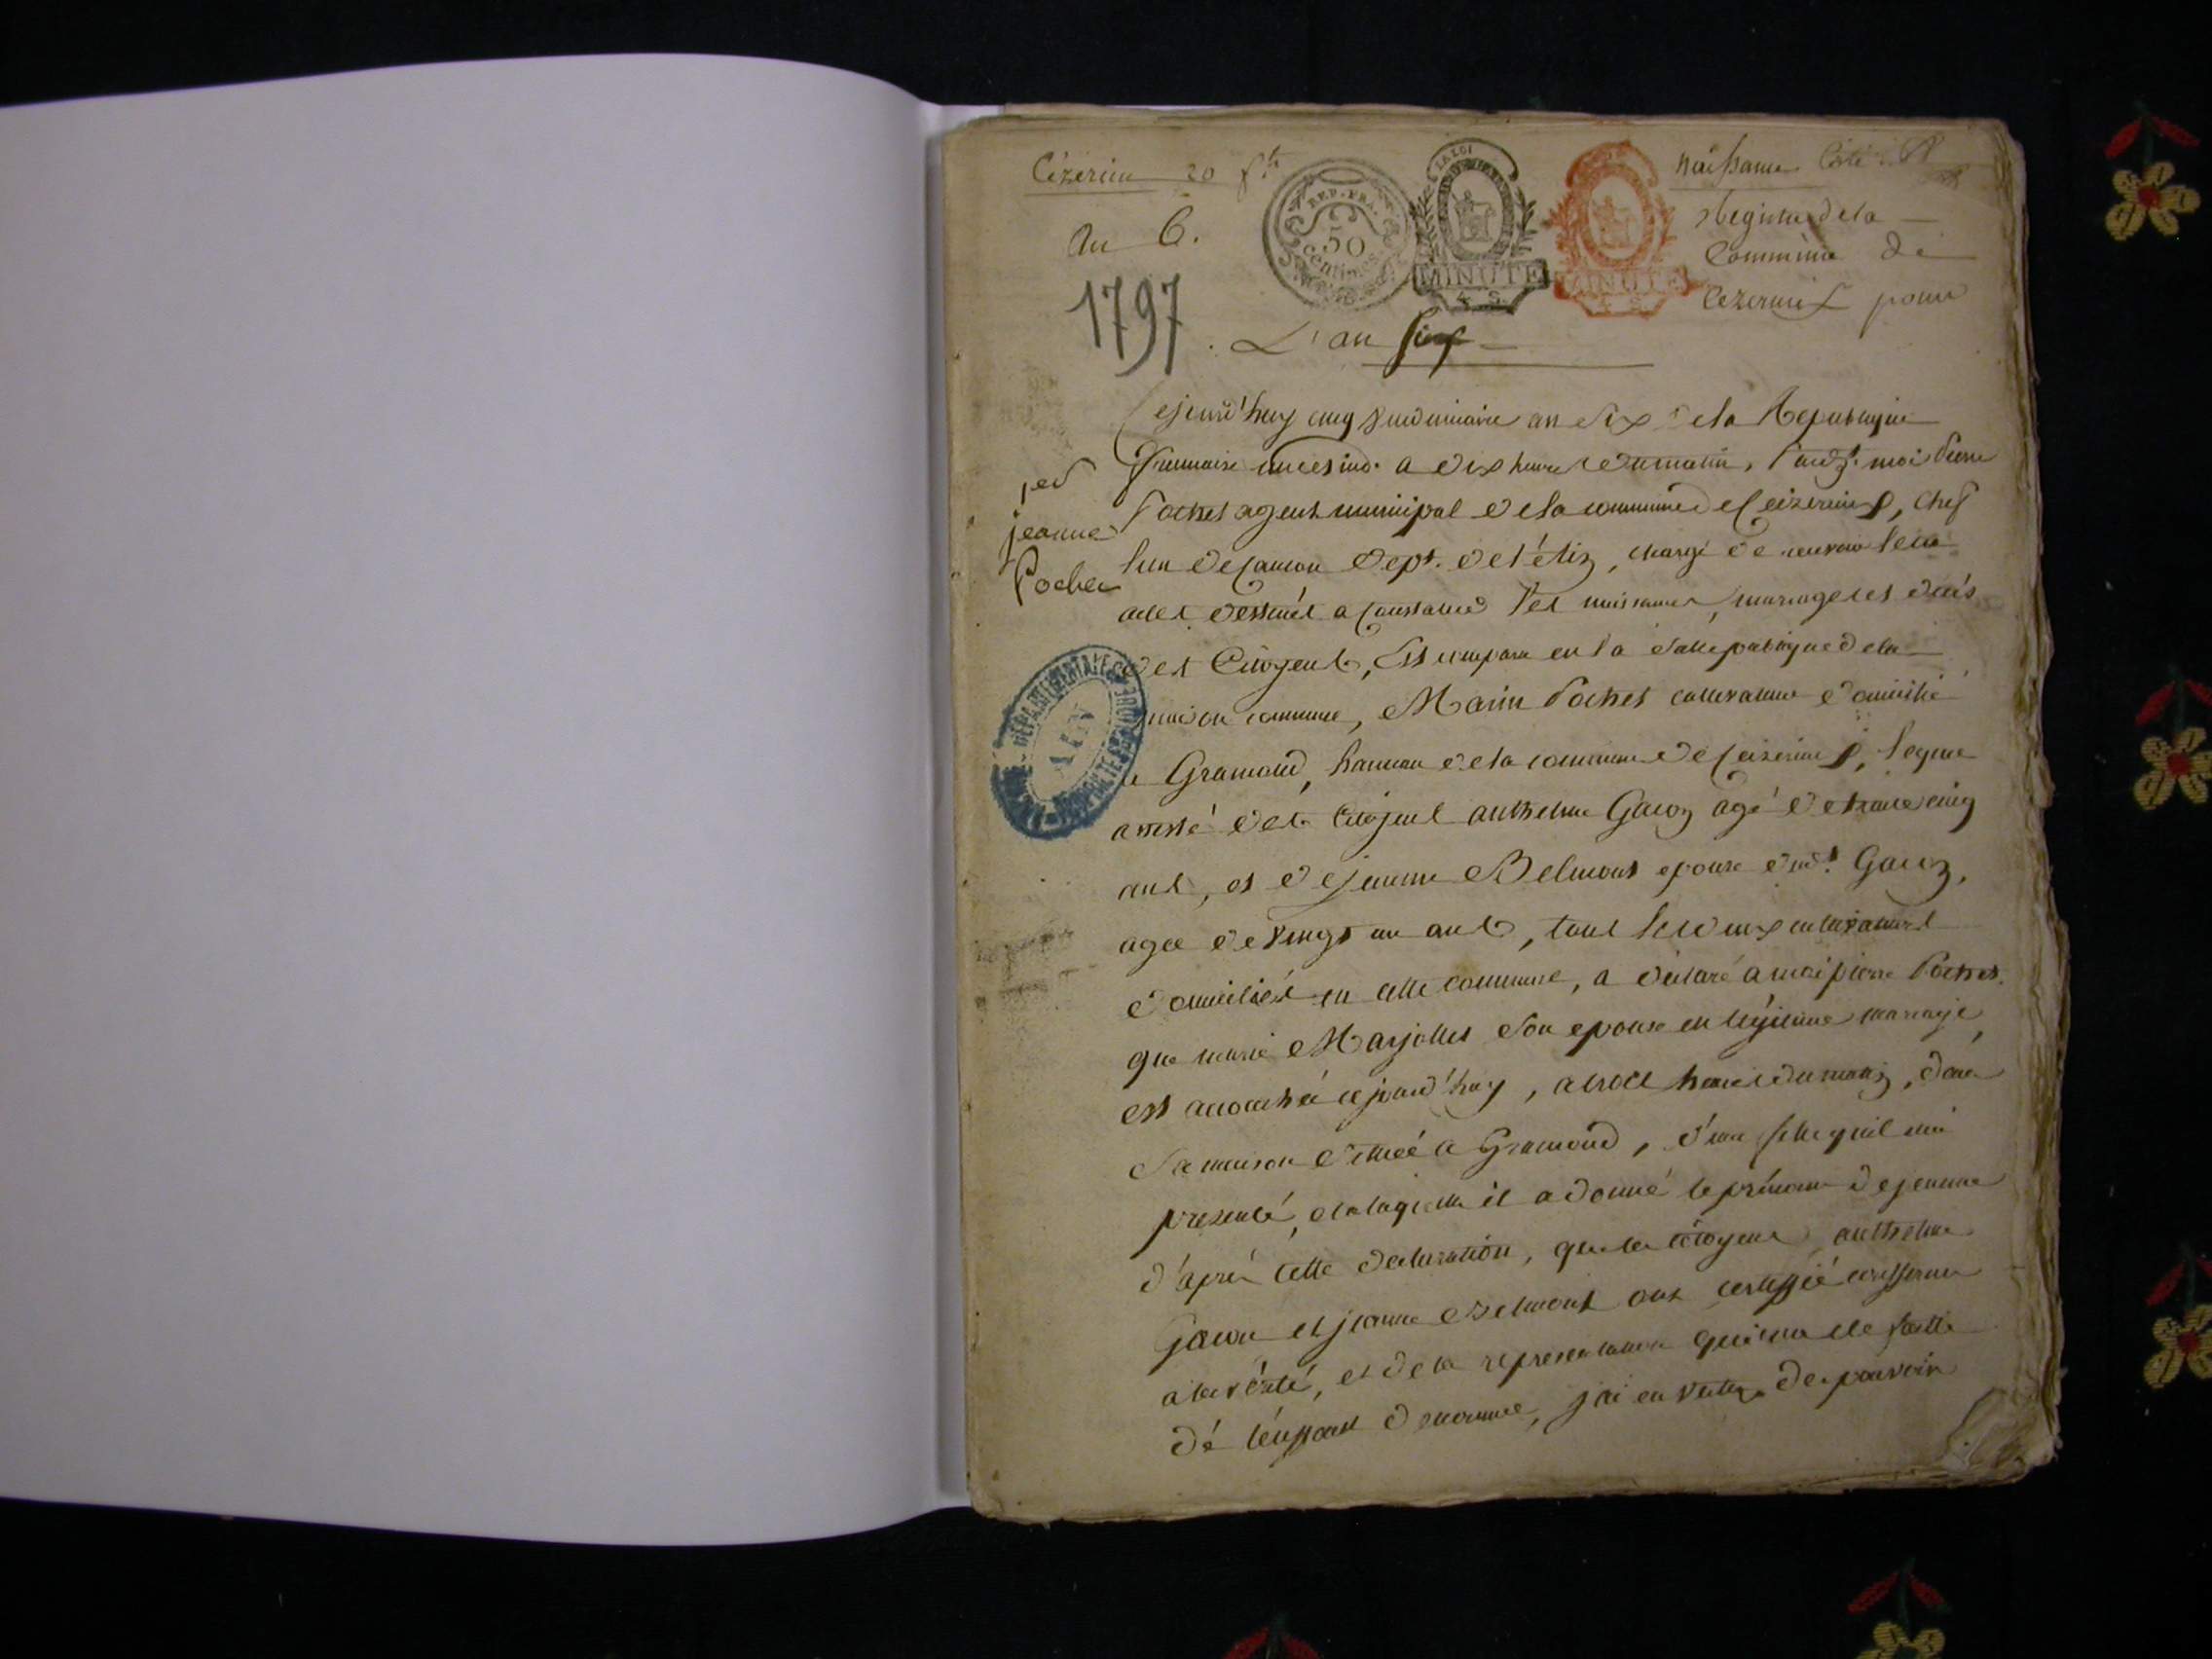 Cézerieu 20 f.ts
naissance Coté
An 6.
Registre de la
Commune de
Cezerieux pour
1797
L'an six
REP. FRA.
50
centimes
LA LOI
MINUTE
4 S
MINUTE
4 S
Cejourd'huy cinq vendemiaire an Six de la Republique
francaise a dix heures du matin, pard.t moi Pierre
1er
jeanne
Pochet
Pochet agent municipal de la commune de Ceizerieux, chef
lieu de canton dept. de l'étin, chargé de recevoir les
actes destinés a constater les naissances, mariages et décés
des Citoyens, Est comparu en la salle publique de la
maison commune, Marin Pochet cultivateur domicilié
a Gramond, hameau de la commune de Ceizerieux, lequel
assisté des Citoyens anthelme Gacon agé de trante cinq
ans, et de jeanne Belmont epouse dud.t Gacon,
agee de vingt un ans, tous les deux cultivateurs
domiciliés en cette commune, a déclaré a moi pierre Pochet
que marie Marjollet son epouse en légitime mariage,
est accouchée cejourd'huy, a trois heures du matin, dans
sa maison située a Gramond, d'une fille quil m'a
presenté, et a laquelle il a donné le prénom de jeanne
d'aprés cette declaration, que les citoyens anthelme
Gacon et jeanne Belmont ont certiffié conforme
a la vérité, et de la representation qui m'a été faitte
dé l'enffant denommé, j'ai en vertu des pouvoirs
ARCHIVES DÉPARTEMENTALES
AIN